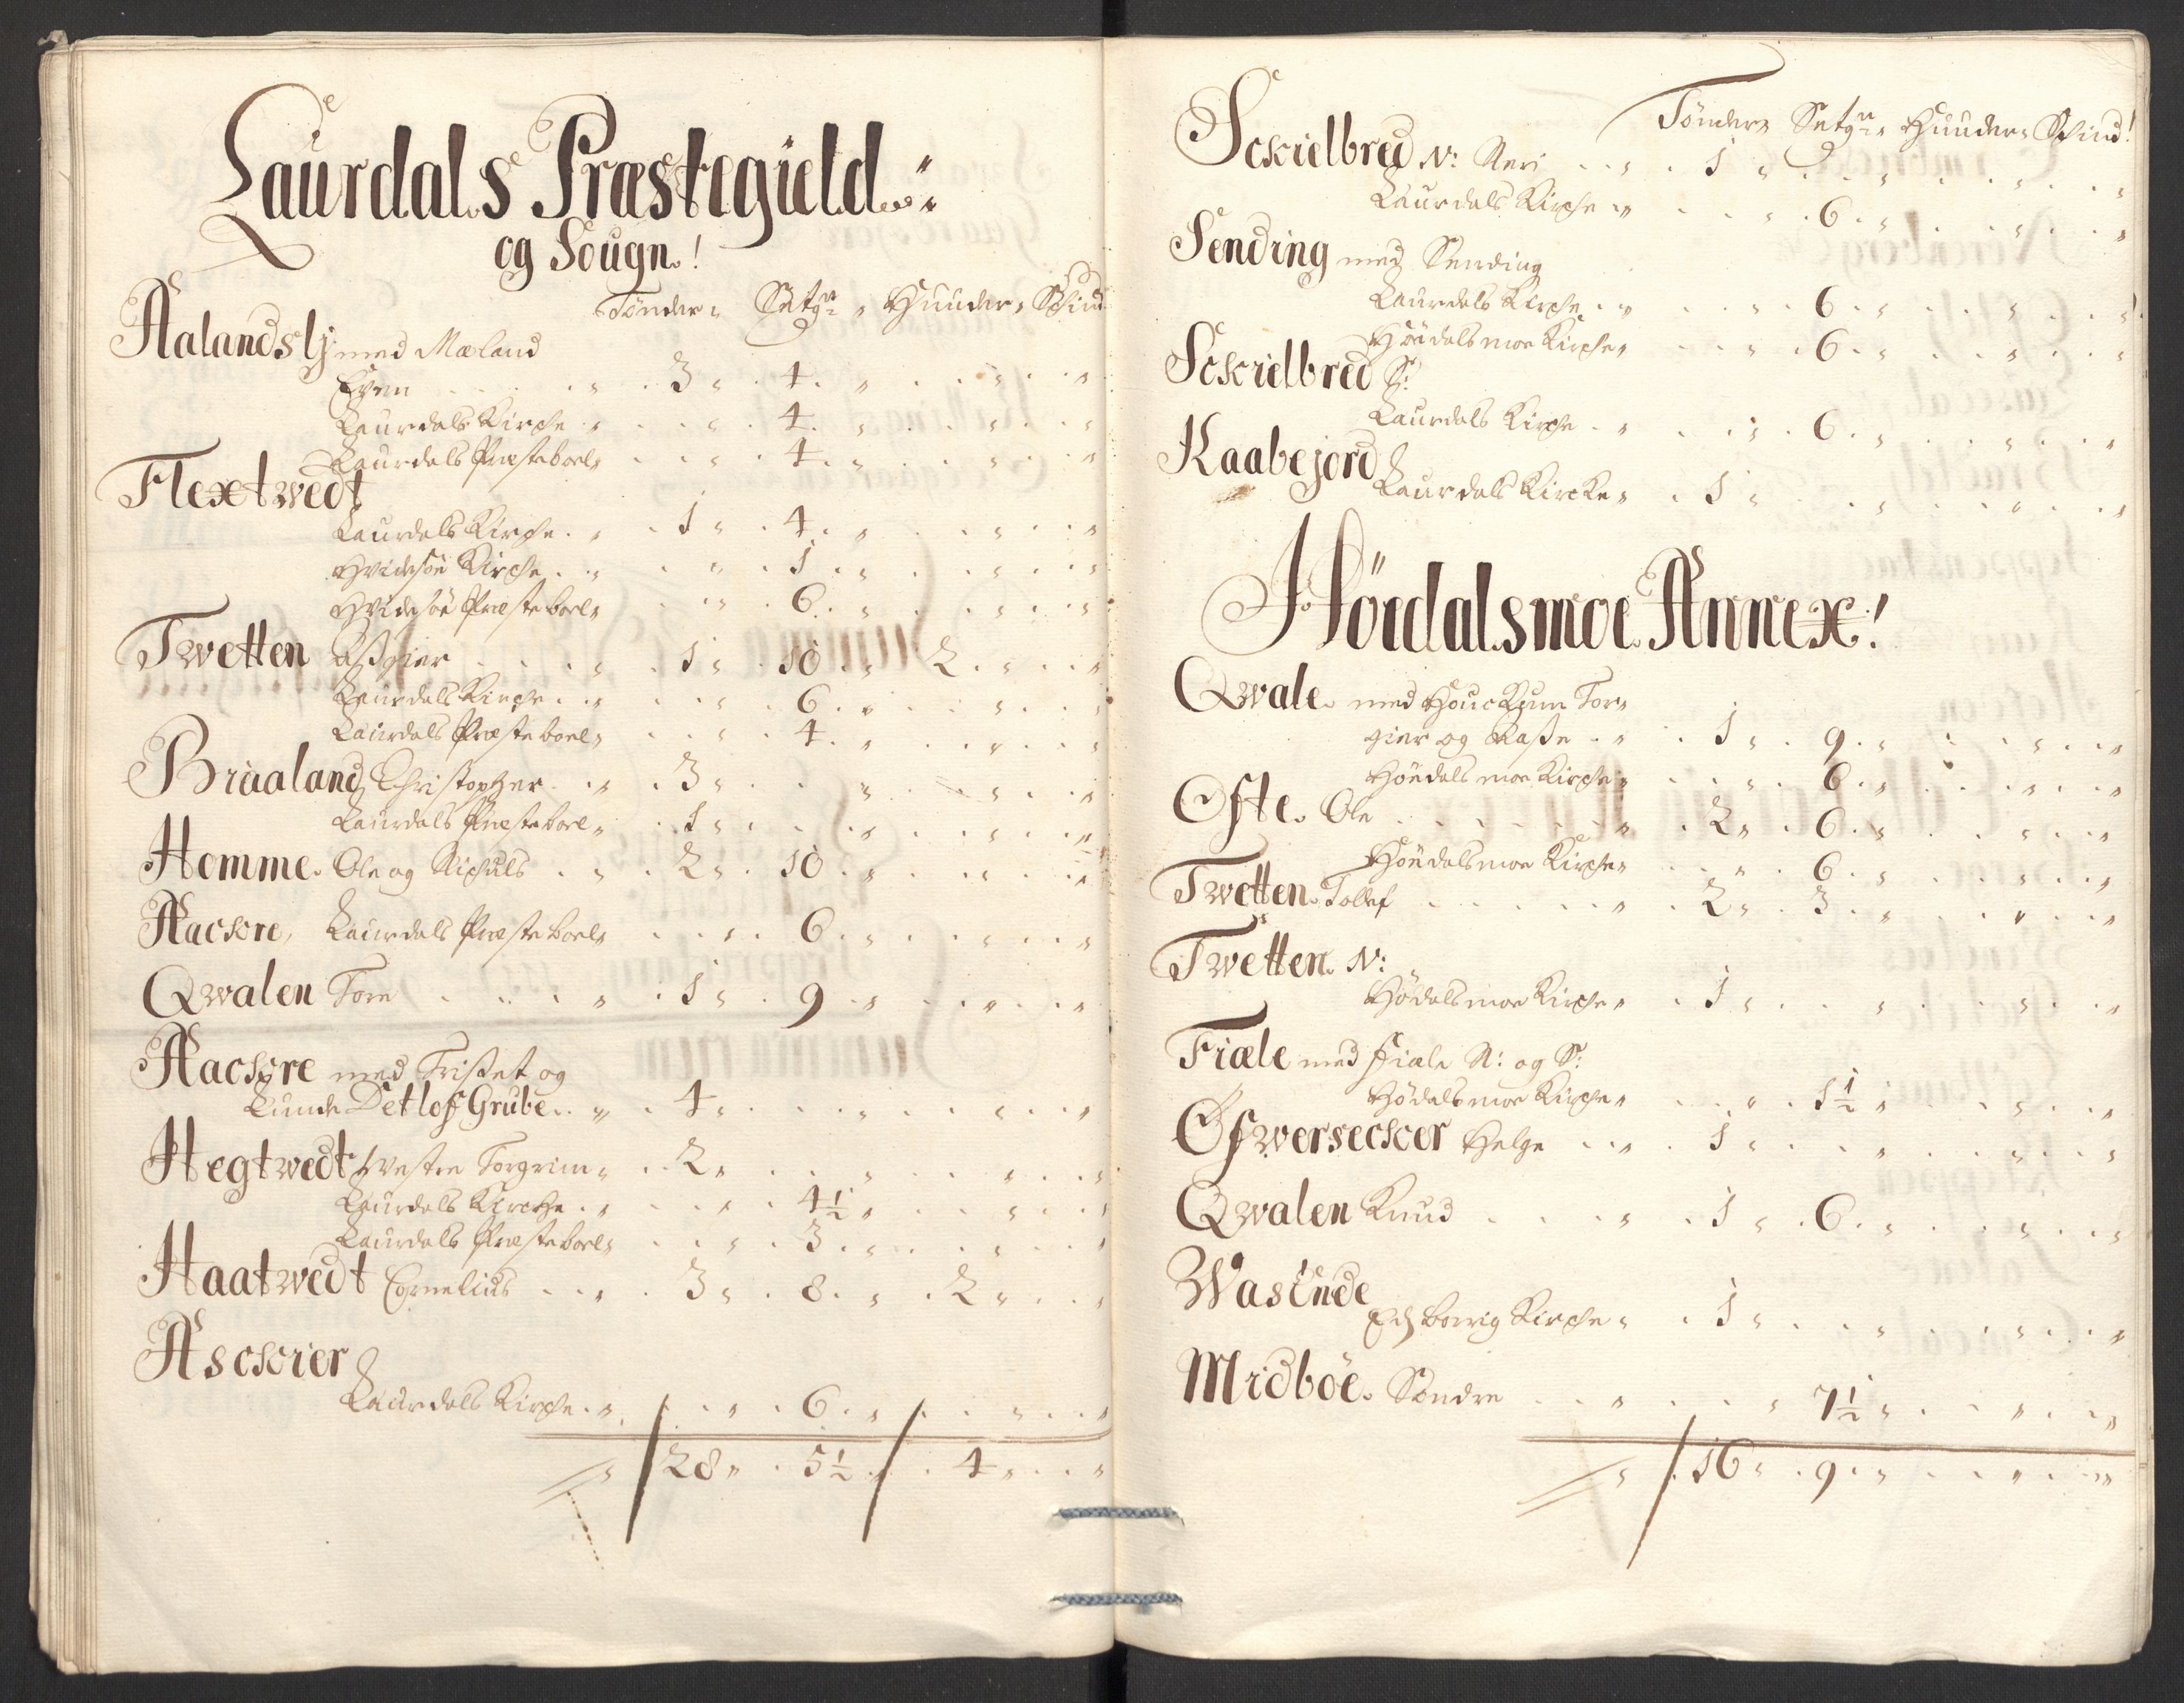 Laurdals Præstegield
og Sougn!
Tønder Setgr Huuder Skind
Aalandslj med Mæland
Even 3 4
Laurdals Kirche 4
Laurdals Præsteboel 4
Flextwedt
Laurdals Kirche 1 4
Hvidesøe Kirche 1
Hvidesøe Præsteboel 6
Twetten Aßgier 1 10 2
Laurdals Kirche 6
Laurdals Præsteboel 4
Braaland Christopher 3
Laurdals Præsteboel 1
Homme Ole og Nichuls 2 10
Aackre Laurdals Præsteboel 6
Qwalen Tore 1 9
Aackre med Tristet og
Lunde Detlof Grube 4
Hegtwedt westre Torgrim 2
Laurdals Kirche 4½
Laurdals Præsteboel 3
Haatwedt Cornelius 3 8 2
Asckier
Laurdals Kirche 6
28 5½ 4
Tønder Setgr Huuder Skind!
Sckielbred N: Neri 1
Laurdals Kirche 6
Sending med Sending
Laurdals Kirche 6
Høidalsmoe Kirche 6
Sckielbred S:
Laurdals Kirche 6
Kaabejord
Laurdals Kircke 1
Høidalsmoe Annex!
Qwale med Houckum Tor-
gier og Aaße 1 9
Høidalsmoe Kirche 6
Ofte Ole 2 6
Høidalsmoe Kirche 6
Twetten Tollef 2 3
Twetten N:
Hødalsmoe Kirche 1
Fiæle med Fiæle N: og S:
Hødalsmoe Kirche 1½
Ofwersecker Helge 1
Qwalen Knud 1 6
Wasende
Eidsborrig Kirche 1
Midbøe Sondre 7½
16 9